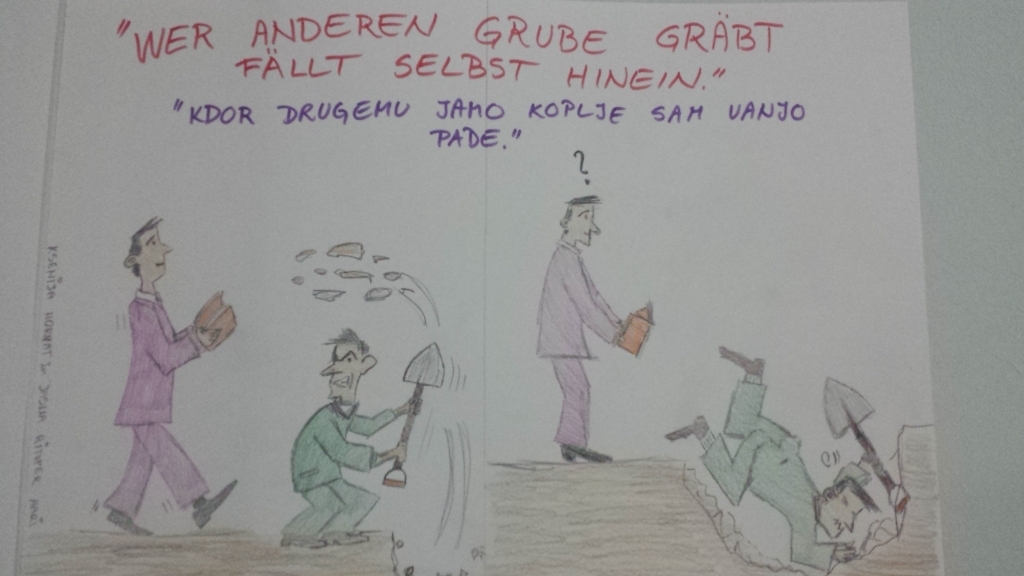 "WER ANDEREN GRUBE GRÄBT
FÄLLT SELBST HINEIN."
"KDOR DRUGEMU JAMO KOPLJE SAM VANJO
PADE."
?